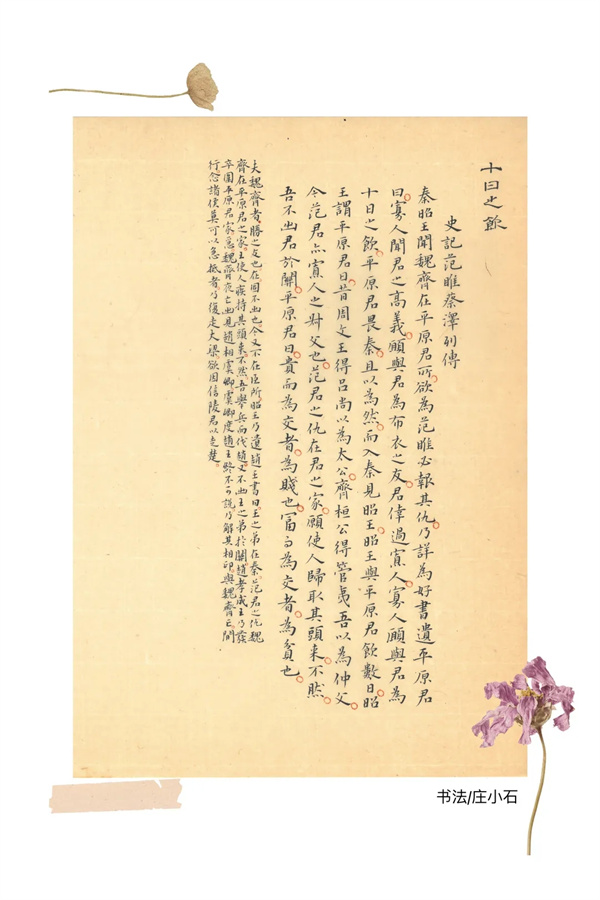 十日之飲
史記范睢蔡澤列傳
秦昭王聞魏齊在平原君所。欲為范睢必報其仇。乃詳為好書遺平原君
曰。寡人聞君之高義。願與君為布衣之友。君倖過寡人。寡人願與君為
十日之飲。平原君畏秦。且以為然。而入秦見昭王。昭王與平原君飲數日昭
王謂平原君曰。昔周文王得呂尚以為太公。齊桓公得管夷吾以為仲父。
今范君亦寡人之叔父也。范君之仇在君之家。願使人歸取其頭來。不然。
吾不出君於關。平原君曰。貴而為交者。為賤也。富而為交者。為貧也。
夫魏齊者。勝之友也。在固不出也。今又不在臣所。昭王乃遺趙王書曰。王之弟在秦。范君之仇魏
齊在平原君之家。王使人疾持其頭來。不然。吾舉兵而伐趙。又不出王之弟於關。趙孝成王乃發
卒圍平原君家。急。魏齊夜亡。出見趙相虞卿。虞卿度趙王終不可說。乃解其相印。與魏齊亡。間
行。念諸侯莫可以急抵者。乃復走大梁。欲因信陵君以走楚。
书法/庄小石